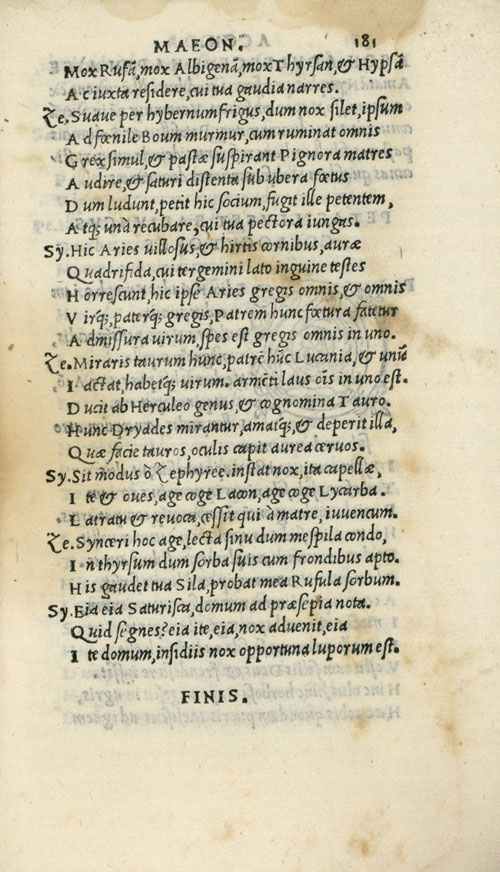 MAEON. 181
Mox Rufã, mox Albigenã, mox Thyrsan, & Hypsã
Ac iuxta residere, cui tua gaudia narres.
Ze. Suaue per hybernum frigus, dum nox silet, ipsum
Ad fœnile Boum murmur, cum ruminat omnis
Grex simul, & pastæ suspirant Pignora matres
Audire, & saturi distenta sub ubera fœtus
Dum ludunt, petit hic socium, fugit ille petentem,
Atq; unà recubare, cui tua pectora iungas.
Sy. Hic Aries uillosus, & hirtis cornibus, auræ
Quadrifida, cui tergemini lato inguine testes
Horrescunt, hic ipse Aries gregis omnis, & omnis
Virq;, paterq; gregis, Patrem hunc fœtura fatetur
Admissura uirum, spes est gregis omnis in uno.
Ze. Miraris taurum hunc, patrẽ hũc Lucania, & unũ
Iactat, habetq; uirum. armẽti laus oĩs in uno est.
Ducit ab Herculeo genus, & cognomina Tauro.
Hunc Dryades mirantur, amatq;, & deperit illa,
Quæ facie tauros, oculis capit aurea ceruos.
Sy. Sit modus ô Zephyree. instat nox, ita capellæ,
Ite & oues, age coge Lacon, age coge Lycarba.
Latratu & reuoca, cessit qui à matre, iuuencum.
Ze. Synceri hoc age, lecta sinu dum mespila condo,
In thyrsum dum sorba suis cum frondibus apto.
His gaudet tua Sila, probat mea Rufula sorbum.
Sy. Eia eia Saturisca, domum ad præsepia nota.
Quid segnes? eia ite, eia, nox aduenit, eia
Ite domum, insidiis nox opportuna luporum est.
FINIS.